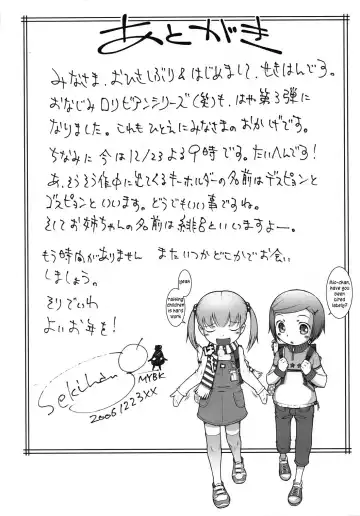 あとがき
みなさま、おひさしぶり&はじめまして、せきはんです。
おなじみロリビアンシリーズ(笑)も、はや第3弾に
なりました。これもひとえにみなさまのおかげです。
ちなみに今は12/23よる9時です。たいへんです!
あ、そうそう作中に出てくるキーホルダーの名前はデスピョンと
ゴスピョンといいます。どうでもいい事ですね。
そしてお姉ちゃんの名前は緋色といいますよー。
もう時間がありません またいつかどこかでお会い
しましょう。
そりでいわ
よいお年を!
Sekihan
MYBK
20051223XX
Nio-chan, have you been tired lately?
yeah
raising children is hard work